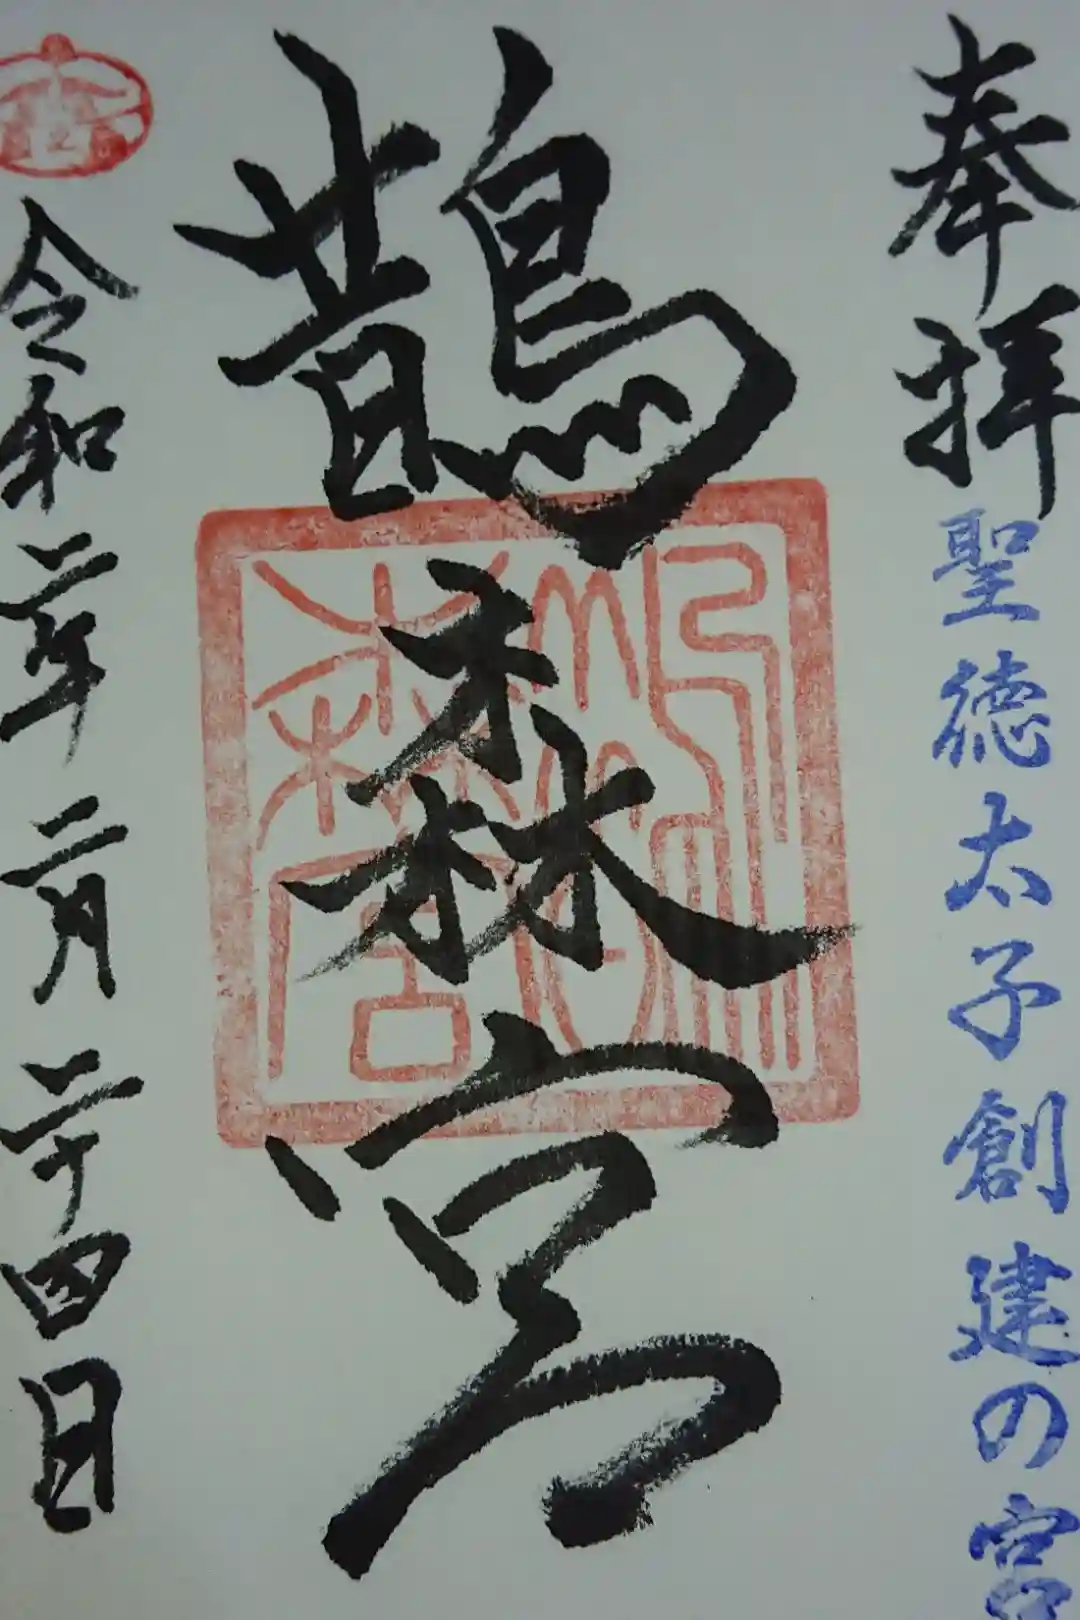 奉拝
聖徳太子創建の宮
鵲森宮
鵲森宮
令和二年二月二十四日